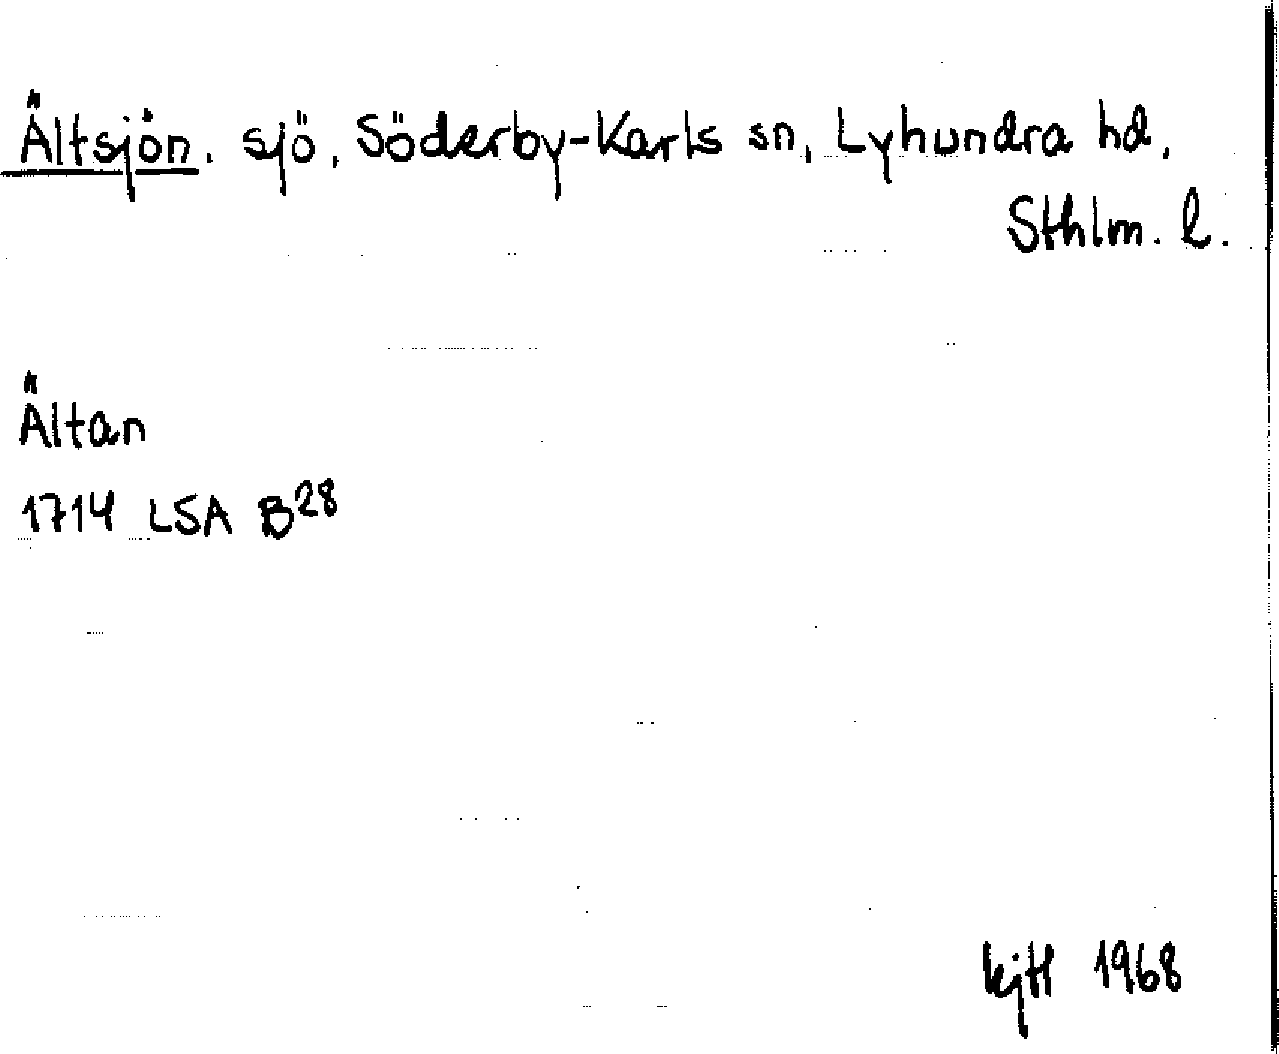 Ältsjön. sjö, Söderby-Karls sn, Lyhundra hd,
Sthlm. l.
Ältan
1714 LSA B28
1968